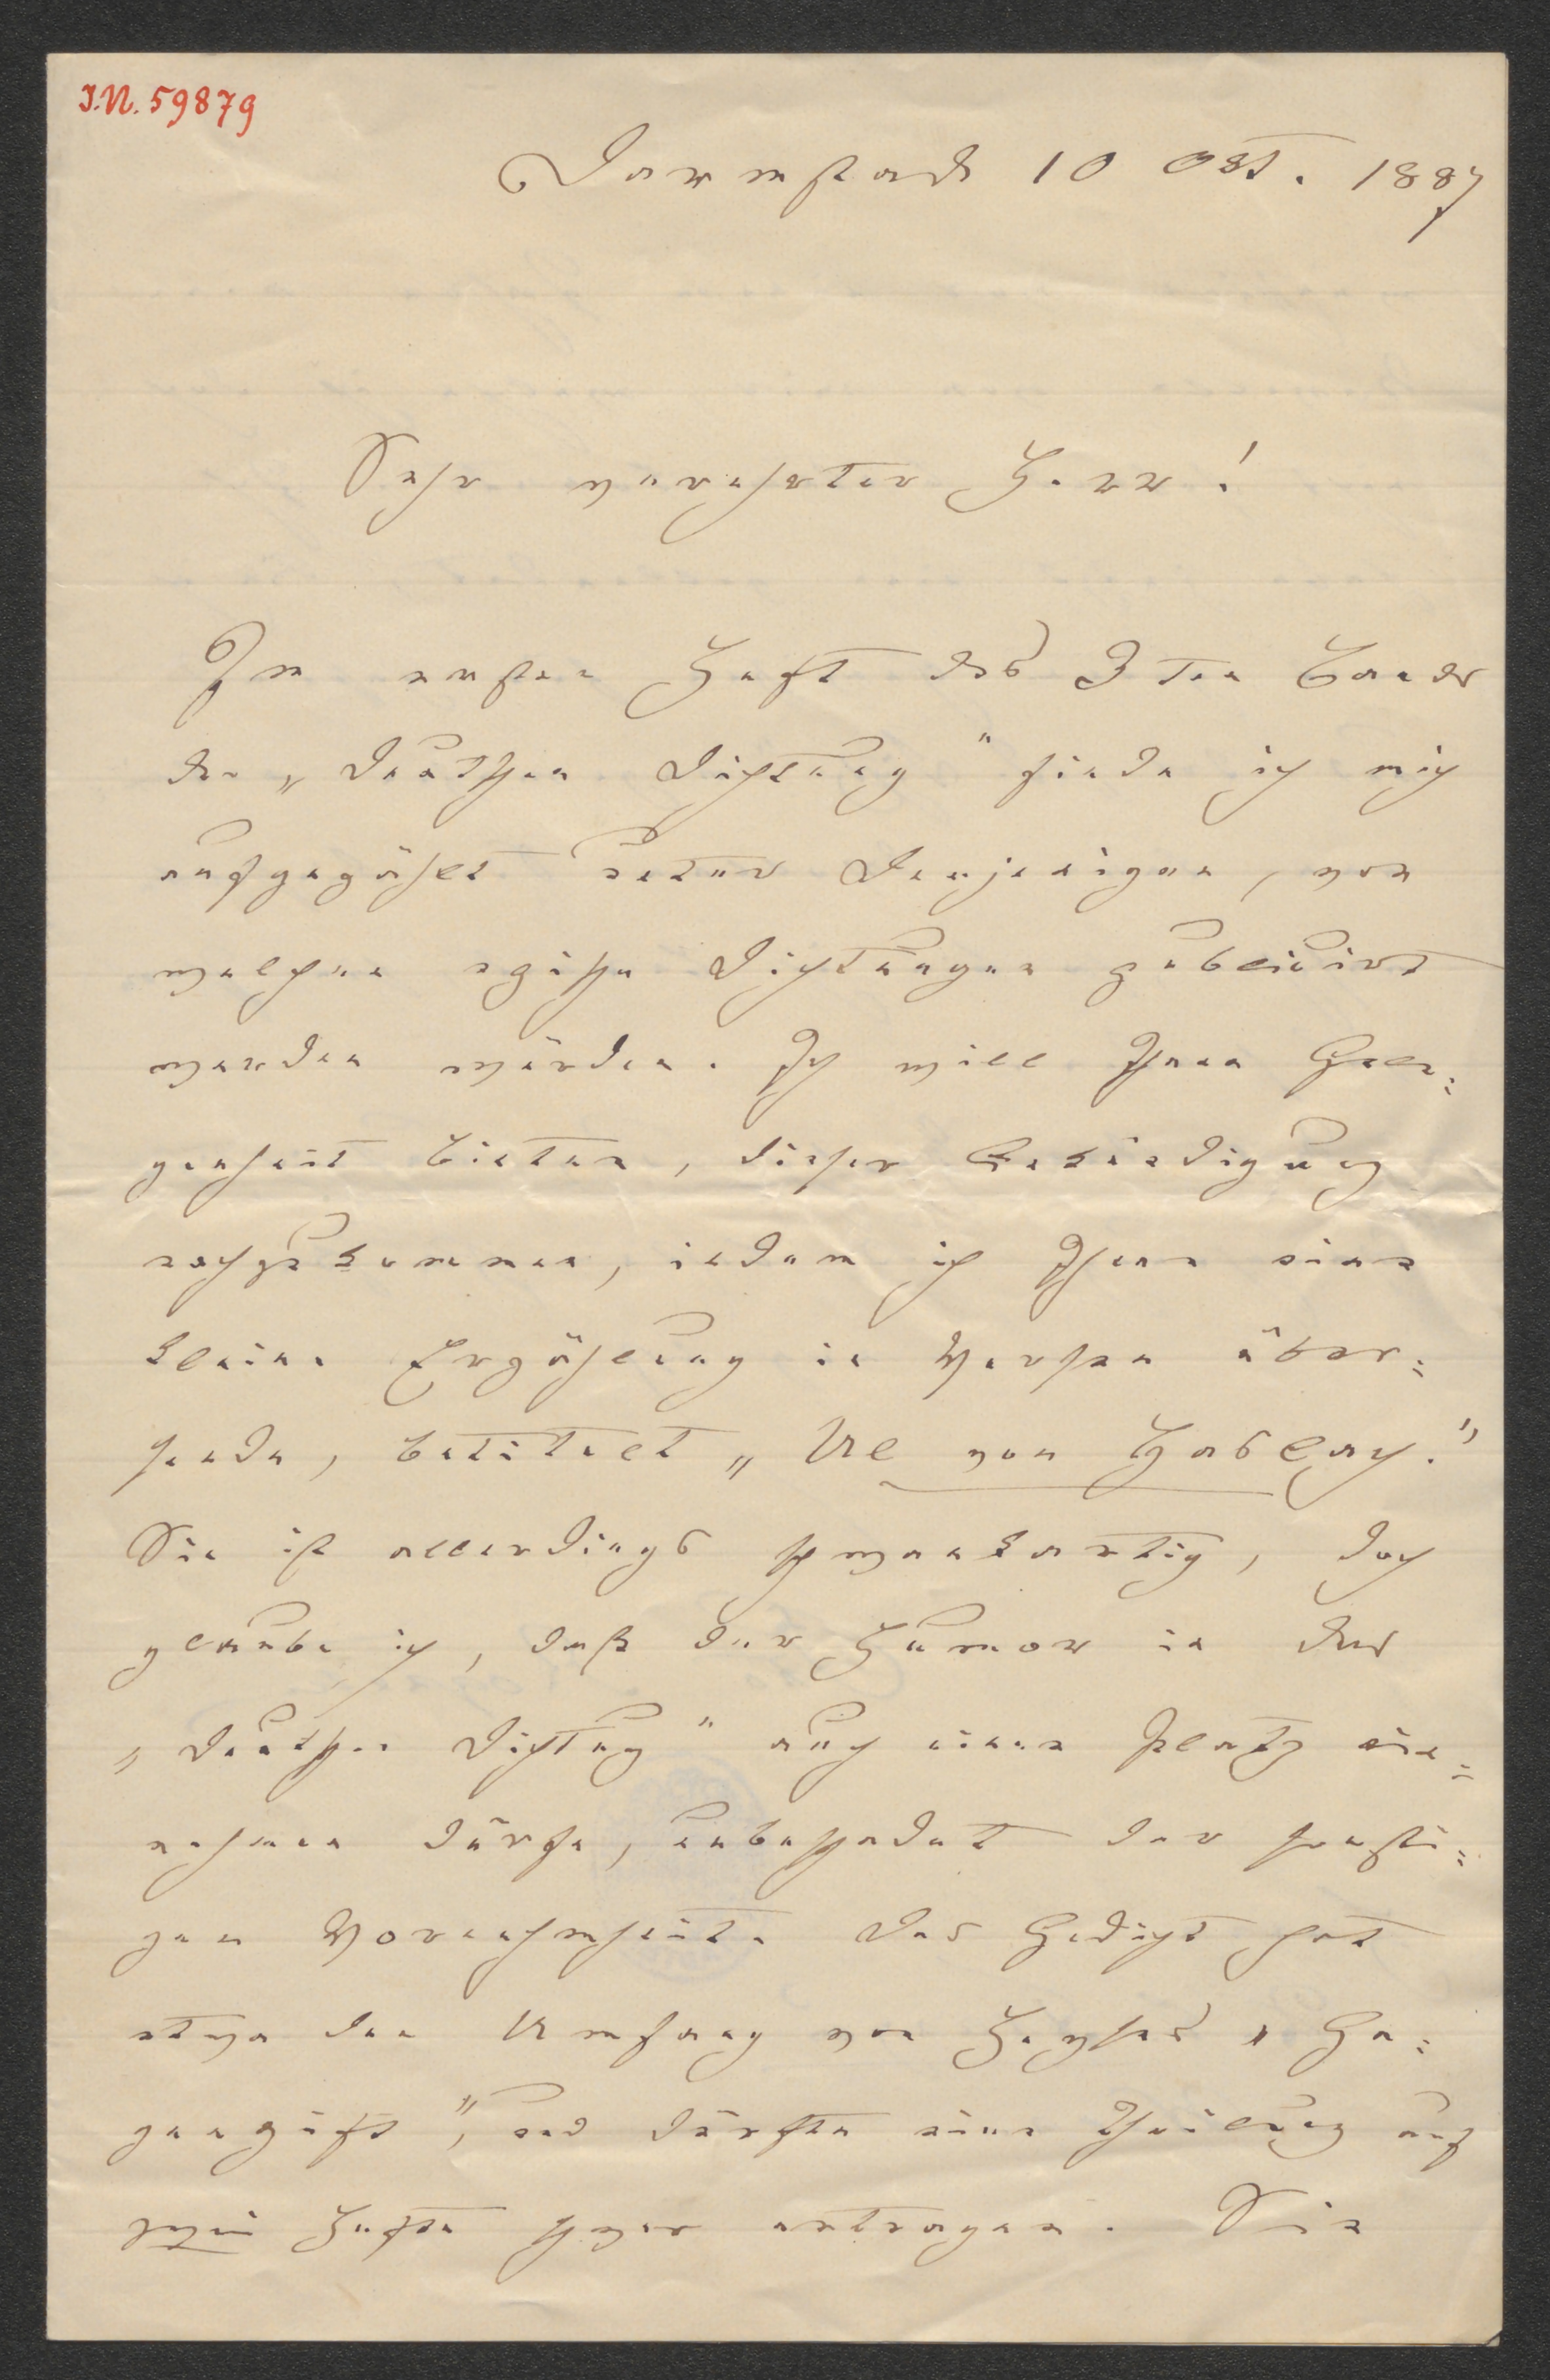 I.N. 59879
Darmstadt 10 Okt. 1887
Sehr verehrter Herr!
Im ersten Heft des 3ten Bandes
der „Deutschen Dichtung" finde ich mich
aufgezählt unter Denjenigen, von
welchen epische Dichtungen publicirt
werden würden. Ich will Ihnen Gele=
genheit bieten, dieser Ankündigung
nachzukommen, indem ich Ihnen eine
kleine Erzählung in Versen über=
sende, betitelt „Ul von Haslach."
Sie ist allerdings schwankartig, doch
glaube ich, daß der Humor in der
„Deutschen Dichtung" auch einen Platz ein=
nehmen dürfe, unbeschadet der sonsti=
gen Vornehmheit. Das Gedicht hat
etwa den Umfang von Heyses „Ge=
gengift", und dürfte eine Theilung auf
zwei Hefte schwer ertragen. Sie